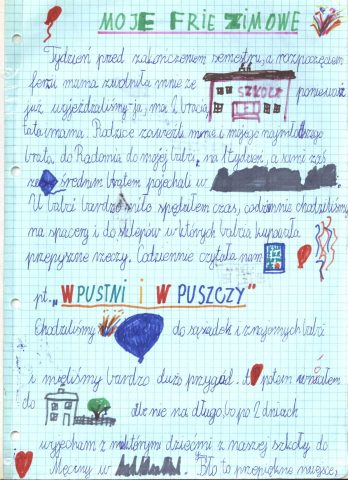 MOJE FRIE ZIMOWE
Tydzień przed zakończeniem semestru, a rozpoczęciem
ferii mama zwolniła mnie ze SZKOŁA ponieważ
już wyjeżdżaliśmy - ja, moi 2 bracia
tata i mama. Rodzice zawieźli mnie i mojego najmłodszego
brata do Radomia do mojej babci, na 1 tydzień, a sami zaś
ze średnim bratem pojechali w
U babci bardzo miło spędziłem czas, codziennie chodziliśmy
na spacery i do sklepów w których babcia kupowała
przepyszne rzeczy. Codziennie czytała nam
pt. „W PUSTNI i W PUSZCZY"
Chodziliśmy do sąsiadek i znajomych babci
i mieliśmy bardzo dużo przygód. A potem wróciłem
do ale nie na długo, bo po 2 dniach
wyjechałem z niektórymi dziećmi z naszej szkoły do
Męciny w . Było to przepiękne miejsce,